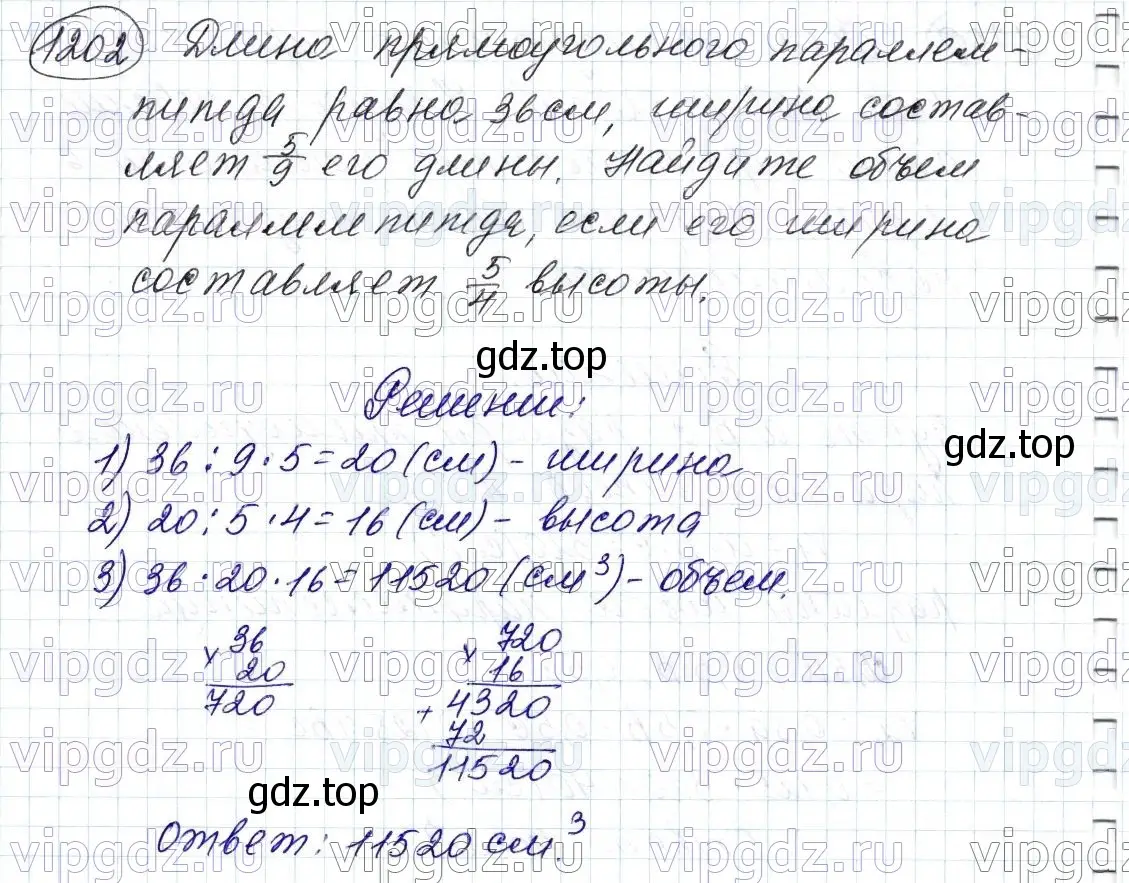 1202 Длина прямоугольного параллеле-
пипеда равна 36 см, ширина состав-
ляет 5/9 его длины. Найдите объем
параллелепипеда, если его ширина
составляет 5/4 высоты.
gdz.top
Решение:
gdz.top
1) 36 : 9 · 5 = 20 (см) - ширина
2) 20 : 5 · 4 = 16 (см) - высота
3) 36 · 20 · 16 = 11520 (см³) - объем.
× 36
20
720
× 720
16
+ 4320
72
11520
gdz.top
Ответ: 11520 см³.
vipgdz.ru